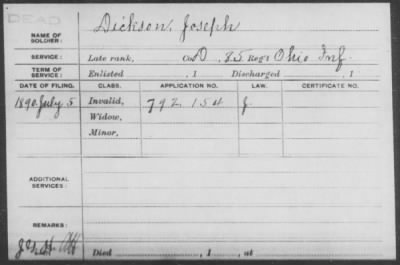 DEAD
NAME OF SOLDIER: Dickson, Joseph
SERVICE: Late rank, Co D, 85 Reg't Ohio Inf.
TERM OF SERVICE: Enlisted , 1 Discharged , 1
DATE OF FILING. CLASS. APPLICATION NO. LAW. CERTIFICATE NO.
1890 July 5 Invalid, 792.154 J.
Widow,
Minor,
ADDITIONAL SERVICES:
REMARKS:
Died , 1 , at